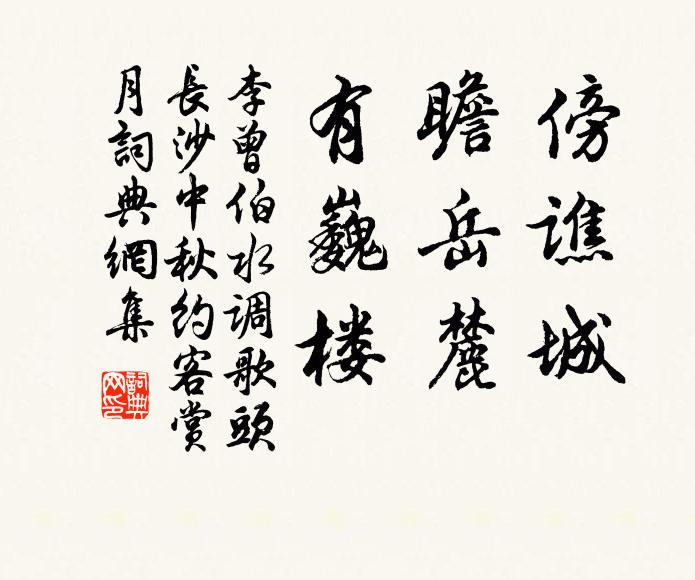 傍譙城
瞻岳麓
有巍楼
李曾伯水调歌頭
長沙中秋约客賞
月詞典網集
詞典
网印